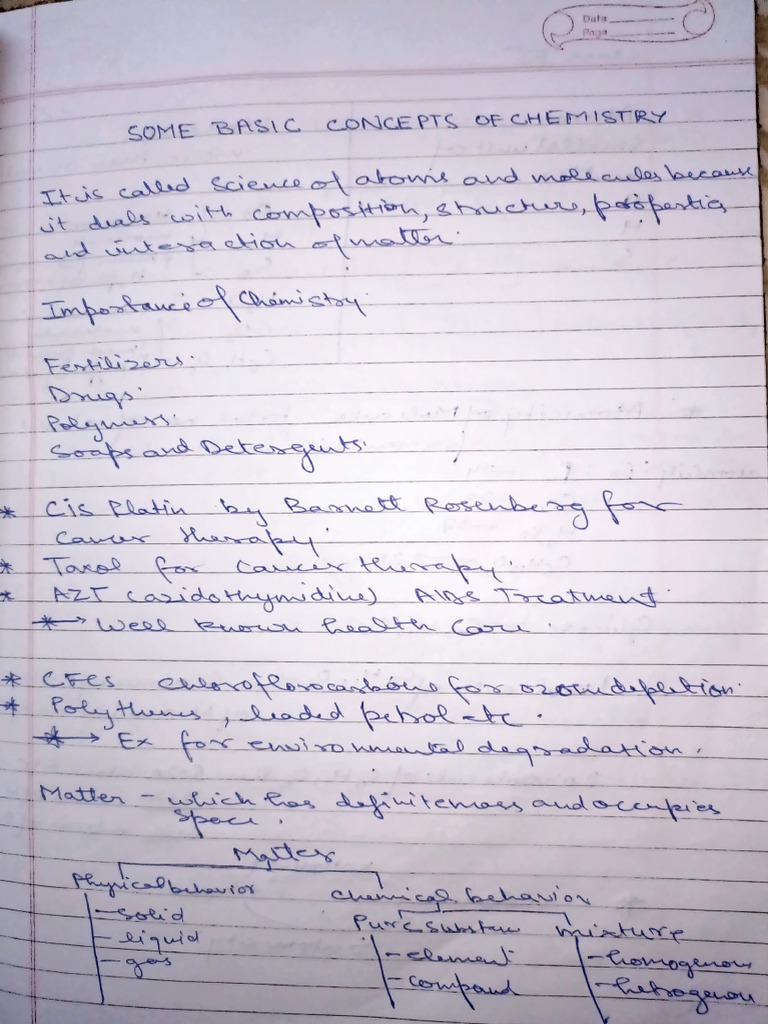 Date
Page
SOME BASIC CONCEPTS OF CHEMISTRY
It is called Science of atoms and molecules because
it deals with composition, structure, properties
and interaction of matter.
Importance of Chemistry.
Fertilizers.
Drugs.
Polymers.
Soaps and Detergents.
* Cis Platin by Barnett Rosenberg for
Cancer therapy.
* Taxol for Cancer therapy.
* AZT (azidothymidine) AIDS Treatment.
*→ Well known health Care.
* CFCs chloroflorocarbons for ozone depletion.
* Polythenes, leaded petrol etc.
*→ Ex for environmental degradation.
Matter - which has definite mass and occupies
space.
Matter
Physical behavior chemical behavior
-solid Pure Substance mixture
-liquid -element -homogenous
-gas -compound -hetrogenous